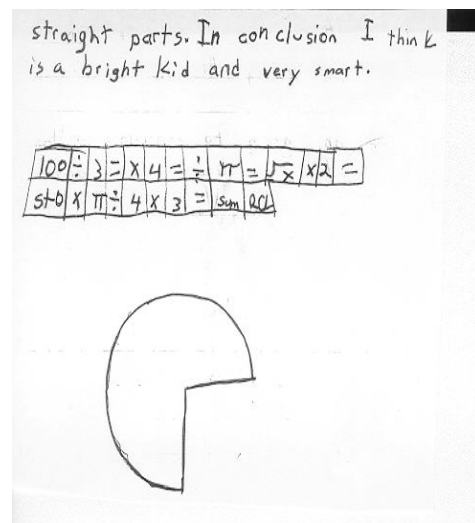 straight parts. In conclusion I think
is a bright kid and very smart.
100 ÷ 3 = x 4 = ÷ π = √x x2 =
sto x π ÷ 4 x 3 = sum RCL